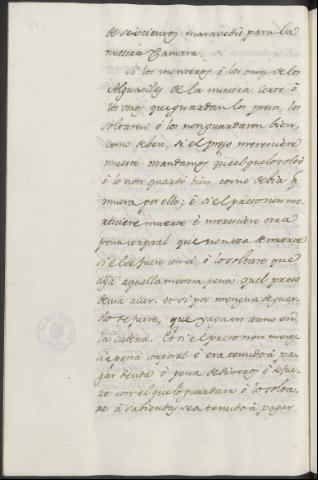 de seiscientos maravedis para la
nuestra Camara.
Si los monteros ó los omes de los
Alguaciles de la nuestra Corte ó
los otros que guardan los presos, los
soltaren ó los non guardaren bien,
como deben, si el preso meresciere
muerte mandamos que el que lo soltó
ó lo non guardó bien como debia q
muera por ello; é si el preso non me-
resciere muerte é meresciere otra
pena corporal que non sea de muerte
si el se fuere con el, ó lo soltare que
aya aquella mesma pena quel preso
devia aver. et si por mengua de guar-
da se fuere, que yaga un anno en
la cadena. Et si el preso non meres-
cie pena corporal é era tenudo á pa-
gar deuda ó pena de dineros é se fue-
re con el que lo guardare ó lo solta-
re á sabiendas sea tenudo á pagar